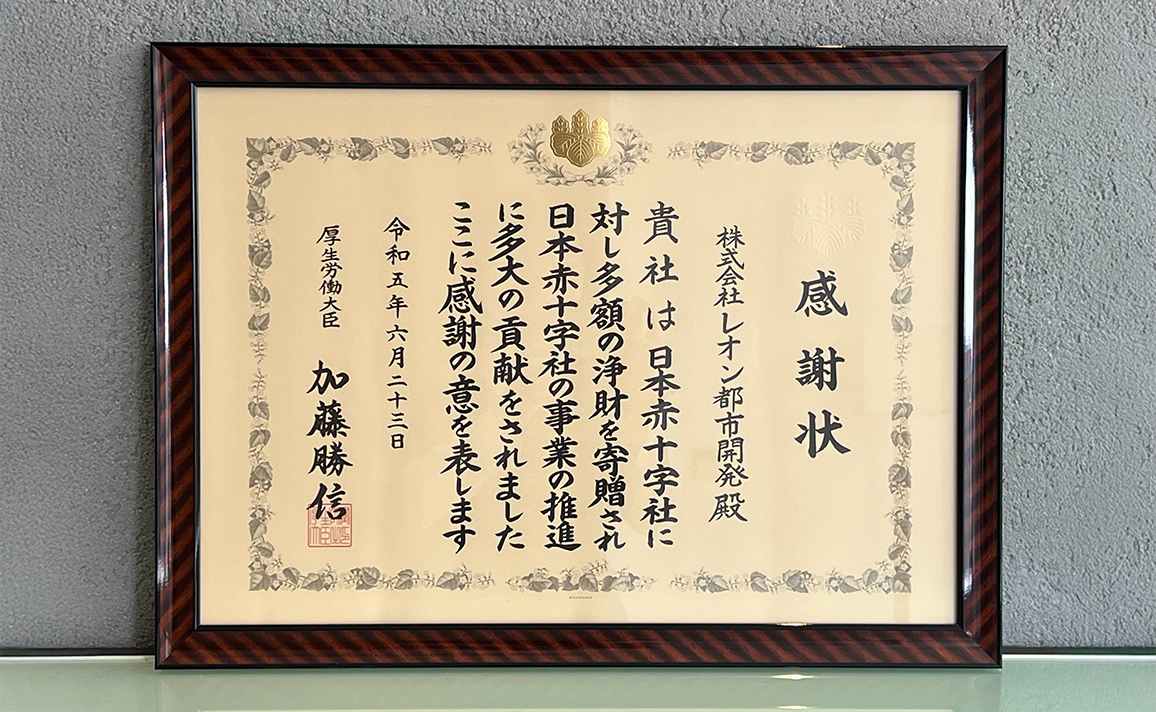 感謝状
株式会社レオン都市開発殿
貴社は日本赤十字社に
対し多額の浄財を寄贈され
日本赤十字社の事業の推進
に多大の貢献をされました
ここに感謝の意を表します
令和五年六月二十三日
厚生労働大臣 加藤勝信